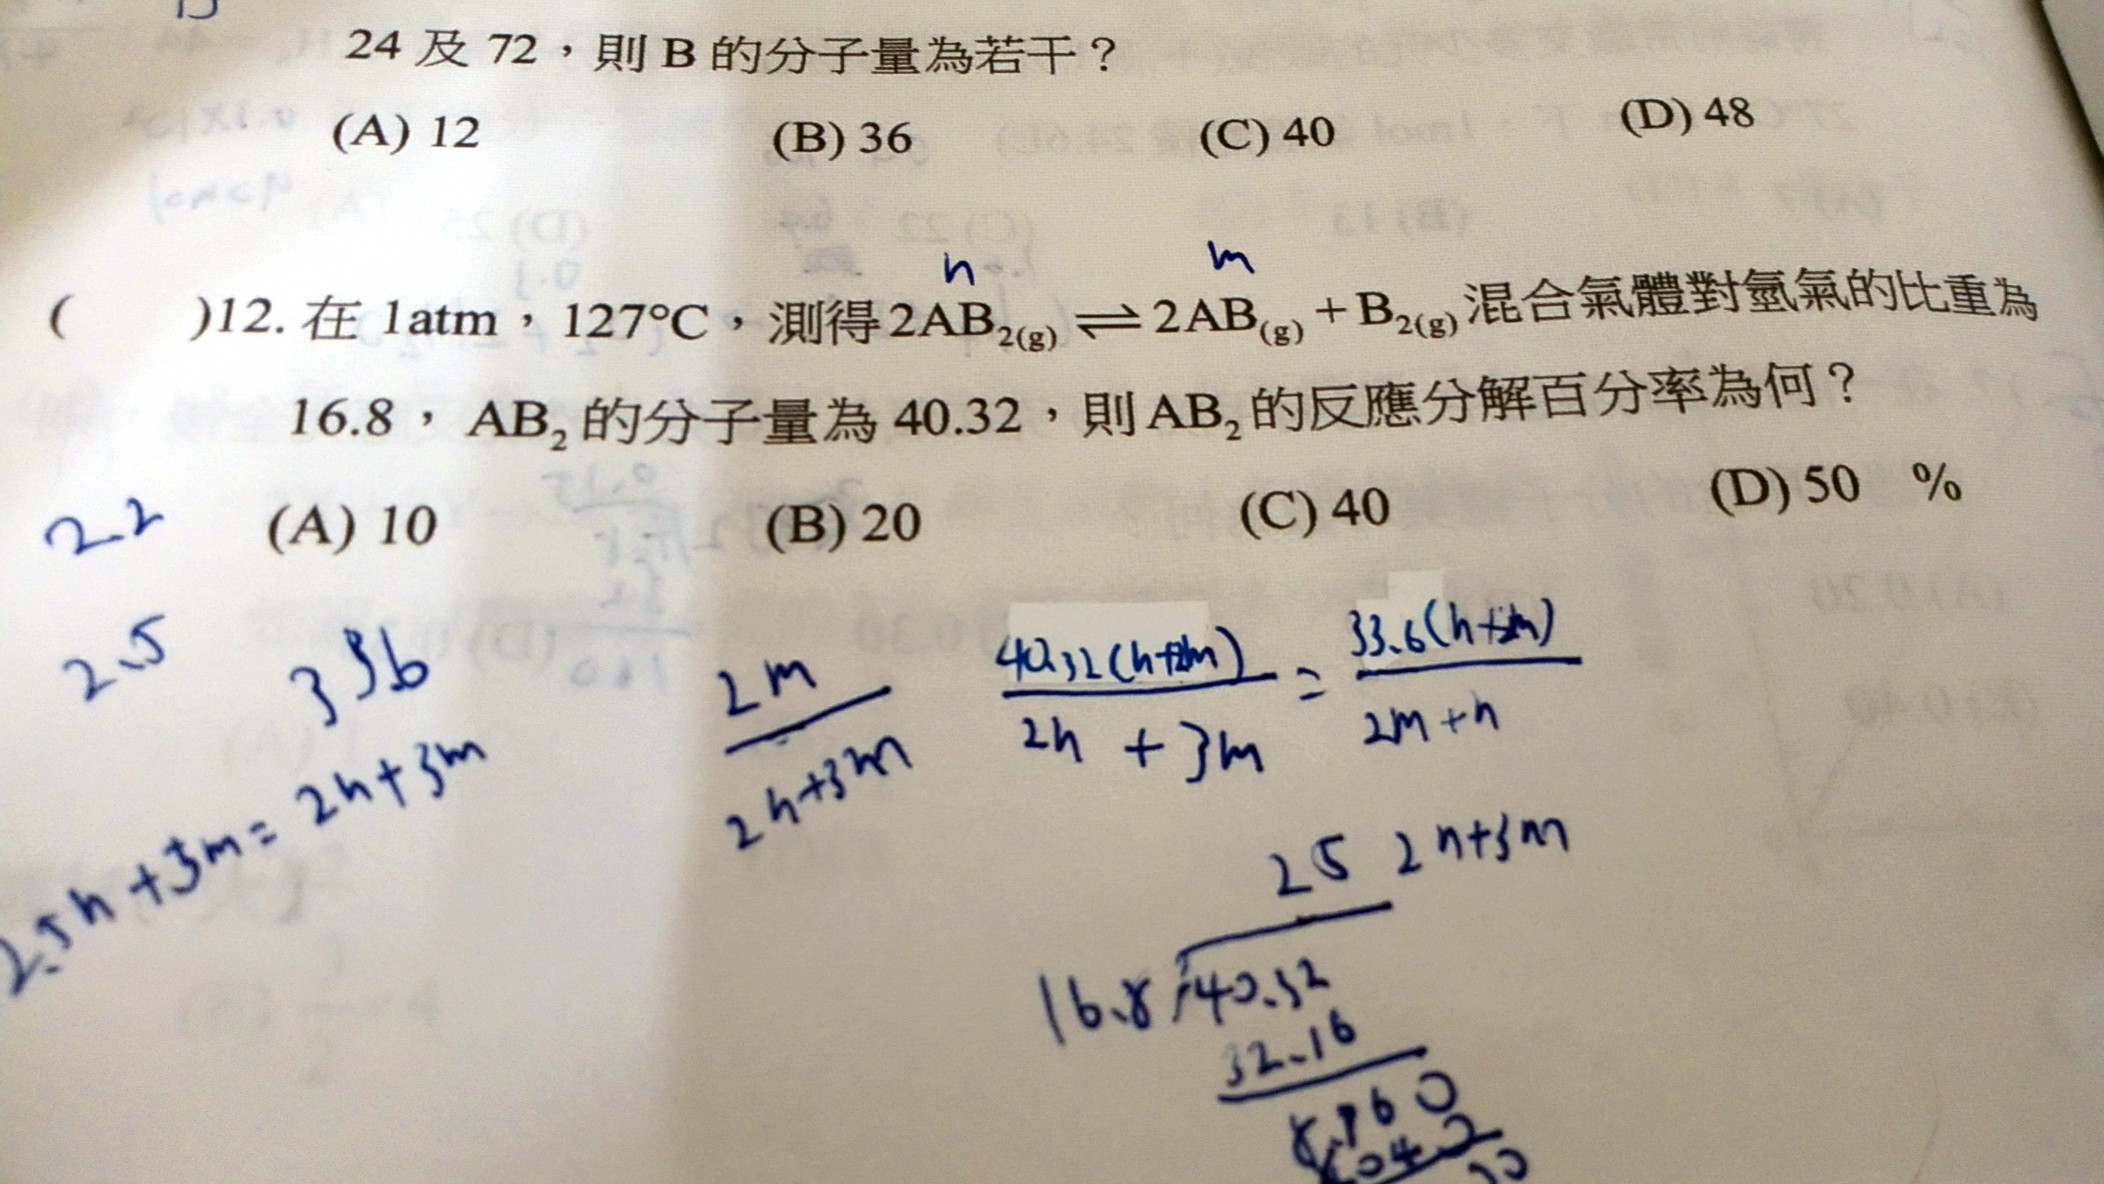 24 及 72，則 B 的分子量為若干？
(A) 12 (B) 36 (C) 40 (D) 48
n m
( )12. 在 1atm，127°C，測得 2AB₂₍g₎ ⇌ 2AB₍g₎ + B₂₍g₎ 混合氣體對氫氣的比重為
16.8，AB₂ 的分子量為 40.32，則 AB₂ 的反應分解百分率為何？
(A) 10 (B) 20 (C) 40 (D) 50 %
22
2.5
2m
2n+3m
2n + 3m = 2m+n
2.5n+3m=2n+3m
25 2n+3m
16.8 40.32
32.16